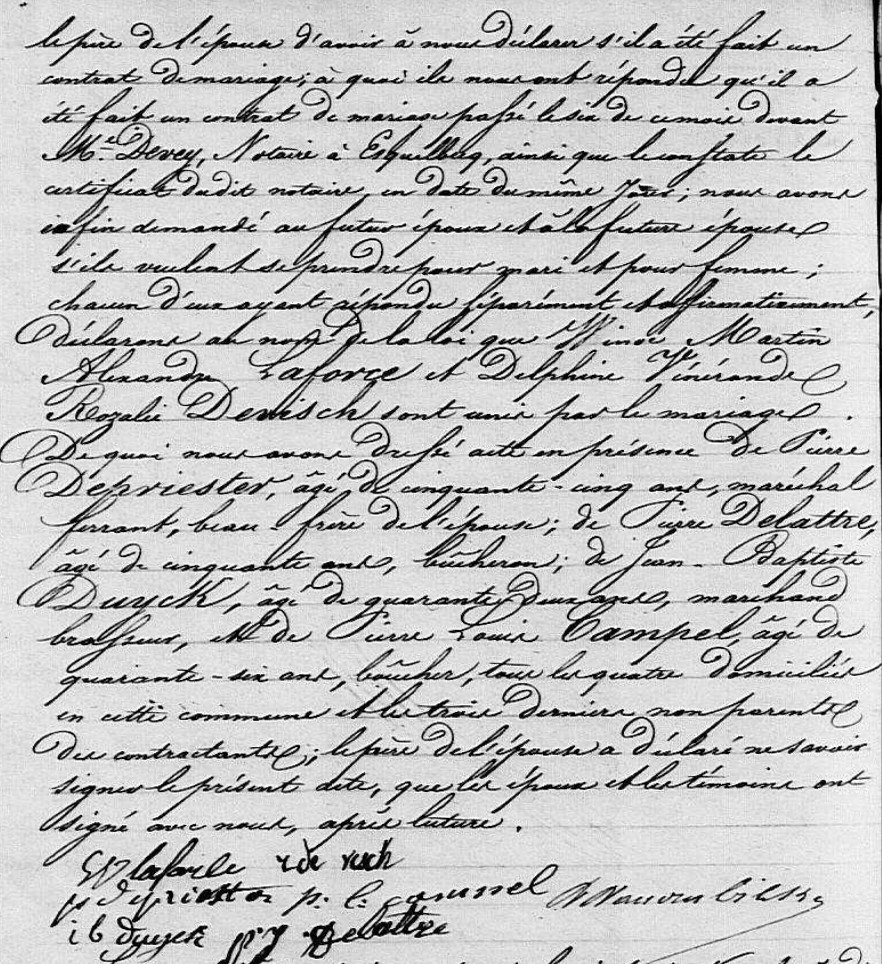 le père de l'épouse d'avoir à nous déclarer s'il a été fait un
contrat de mariage; à quoi ils nous ont répondu qu'il a
été fait un contrat de mariage passé le six de ce mois devant
Me. Devey, Notaire à Esquelbecq, ainsi que le constate le
certificat dudit notaire, en date du même jour; nous avons
enfin demandé au futur époux et à la future épouse
s'ils veulent se prendre pour mari et pour femme;
chacun d'eux ayant répondu séparément et affirmativement,
déclarons au nom de la loi que Winoc Martin
Alexandre Laforce et Delphine Vénérande
Rozalie Denisch sont unis par le mariage.
De quoi nous avons dressé acte en présence de Pierre
Depriester, âgé de cinquante-cinq ans, maréchal
ferrant, beau-frère de l'épouse; de Pierre Delattre,
âgé de cinquante ans, bûcheron; de Jean-Baptiste
Duyck, âgé de quarante deux ans, marchand
brasseur, et de Pierre Louis Campel, âgé de
quarante-six ans, boûcher, tous les quatre domiciliés
en cette commune et les trois derniers non parents
des contractants; le père de l'épouse a déclaré ne savoir
signer le présent acte, que les époux et les témoins ont
signé avec nous, après lecture.
laforce
p. l.
i b duyck delattre